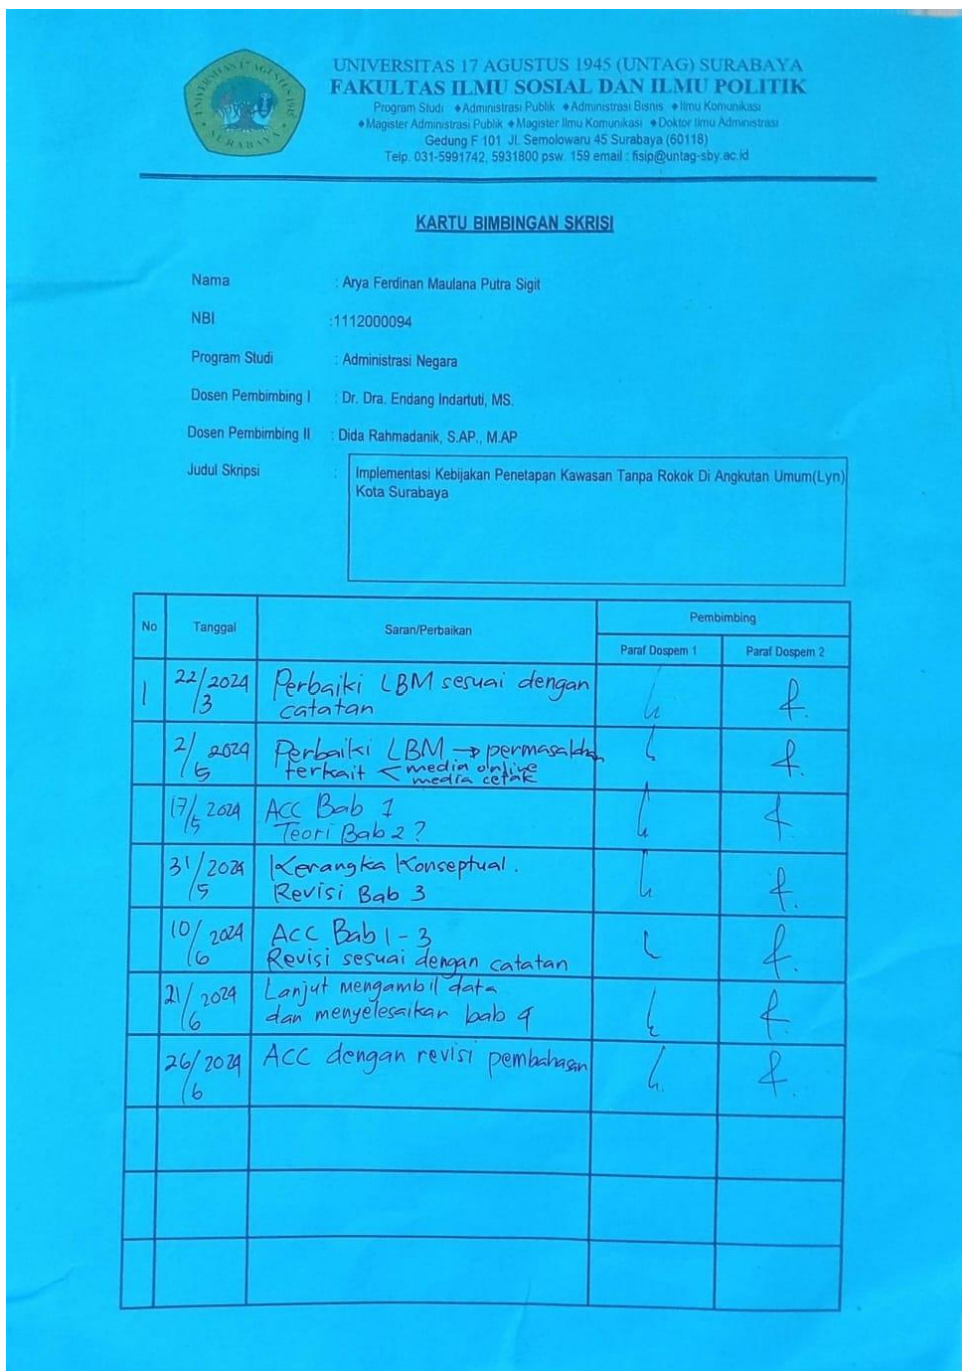 UNIVERSITAS 17 AGUSTUS 1945
SURABAYA
UNIVERSITAS 17 AGUSTUS 1945 (UNTAG) SURABAYA
FAKULTAS ILMU SOSIAL DAN ILMU POLITIK
Program Studi ♦Administrasi Publik ♦Administrasi Bisnis ♦Ilmu Komunikasi
♦Magister Administrasi Publik ♦Magister Ilmu Komunikasi ♦Doktor Ilmu Administrasi
Gedung F 101 Jl. Semolowaru 45 Surabaya (60118)
Telp. 031-5991742, 5931800 psw. 159 email : fisip@untag-sby.ac.id
KARTU BIMBINGAN SKRISI
Nama : Arya Ferdinan Maulana Putra Sigit
NBI :1112000094
Program Studi : Administrasi Negara
Dosen Pembimbing I : Dr. Dra. Endang Indartuti, MS.
Dosen Pembimbing II : Dida Rahmadanik, S.AP., M.AP
Judul Skripsi : Implementasi Kebijakan Penetapan Kawasan Tanpa Rokok Di Angkutan Umum(Lyn)
Kota Surabaya
No Tanggal Saran/Perbaikan Pembimbing
Paraf Dospem 1 Paraf Dospem 2
1 22/3 2024 Perbaiki LBM sesuai dengan
catatan
2/5 2024 Perbaiki LBM → permasalahan
terkait < media online
media cetak
17/5 2024 ACC Bab 1
Teori Bab 2 ?
31/5 2024 Kerangka Konseptual.
Revisi Bab 3
10/6 2024 ACC Bab 1 - 3
Revisi sesuai dengan catatan
21/6 2024 Lanjut mengambil data
dan menyelesaikan bab 4
26/6 2024 ACC dengan revisi pembahasan